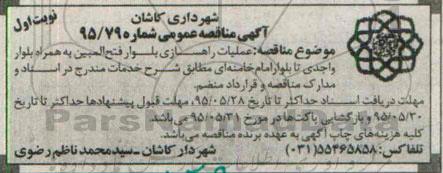 نوبت اول
شهرداری کاشان
آگهی مناقصه عمومی شماره ۹۵/۷۹
موضوع مناقصه: عملیات راهسازی بلوار فتح‌المبین به همراه بلوار
واجدی تا بلوار امام خامنه‌ای مطابق شرح خدمات مندرج در اسناد و
مدارک مناقصه و قرارداد منضم.
مهلت دریافت اسناد حداکثر تا تاریخ ۹۵/۰۵/۲۸، مهلت قبول پیشنهادها حداکثر تا تاریخ
۹۵/۰۵/۳۰ و بازگشایی پاکت‌ها در مورخ ۹۵/۰۵/۳۱ می‌باشد.
کلیه هزینه‌های چاپ آگهی به عهده برنده مناقصه می‌باشد.
تلفاکس: ۵۵۴۶۵۸۵۸(۰۳۱) شهردار کاشان ــ سیدمحمد ناظم رضوی